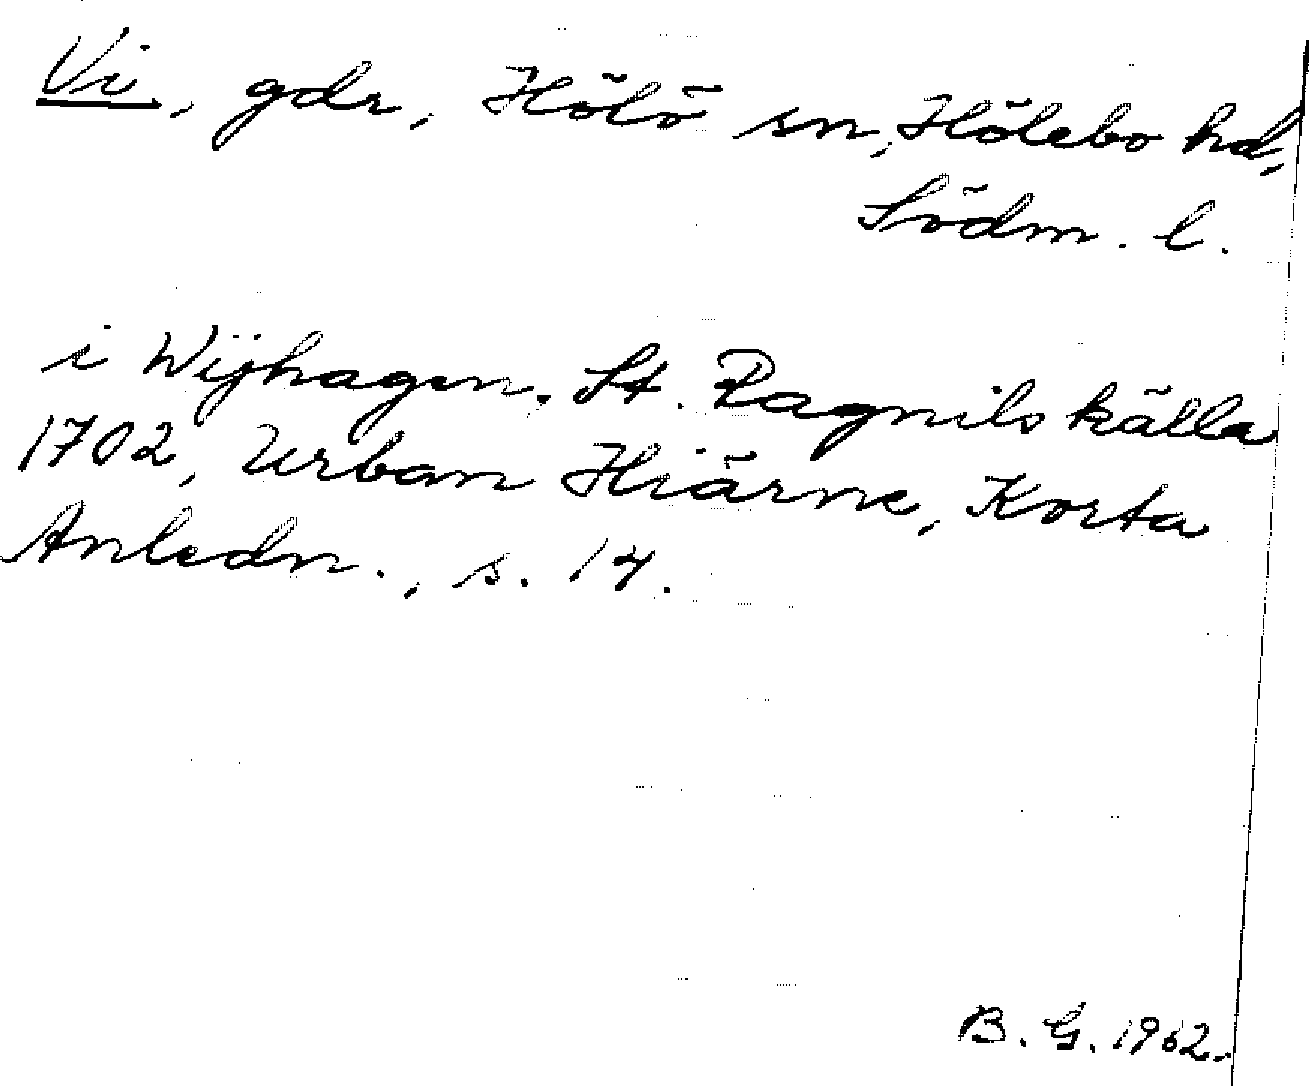 Vi, gdr, Hölö sn, Hölebo hd,
Södm. l.
i Wijhagen. St. Ragnils källa
1702, Urban Hiärne, Korta
Anledn., s. 14.
B. G. 1962.